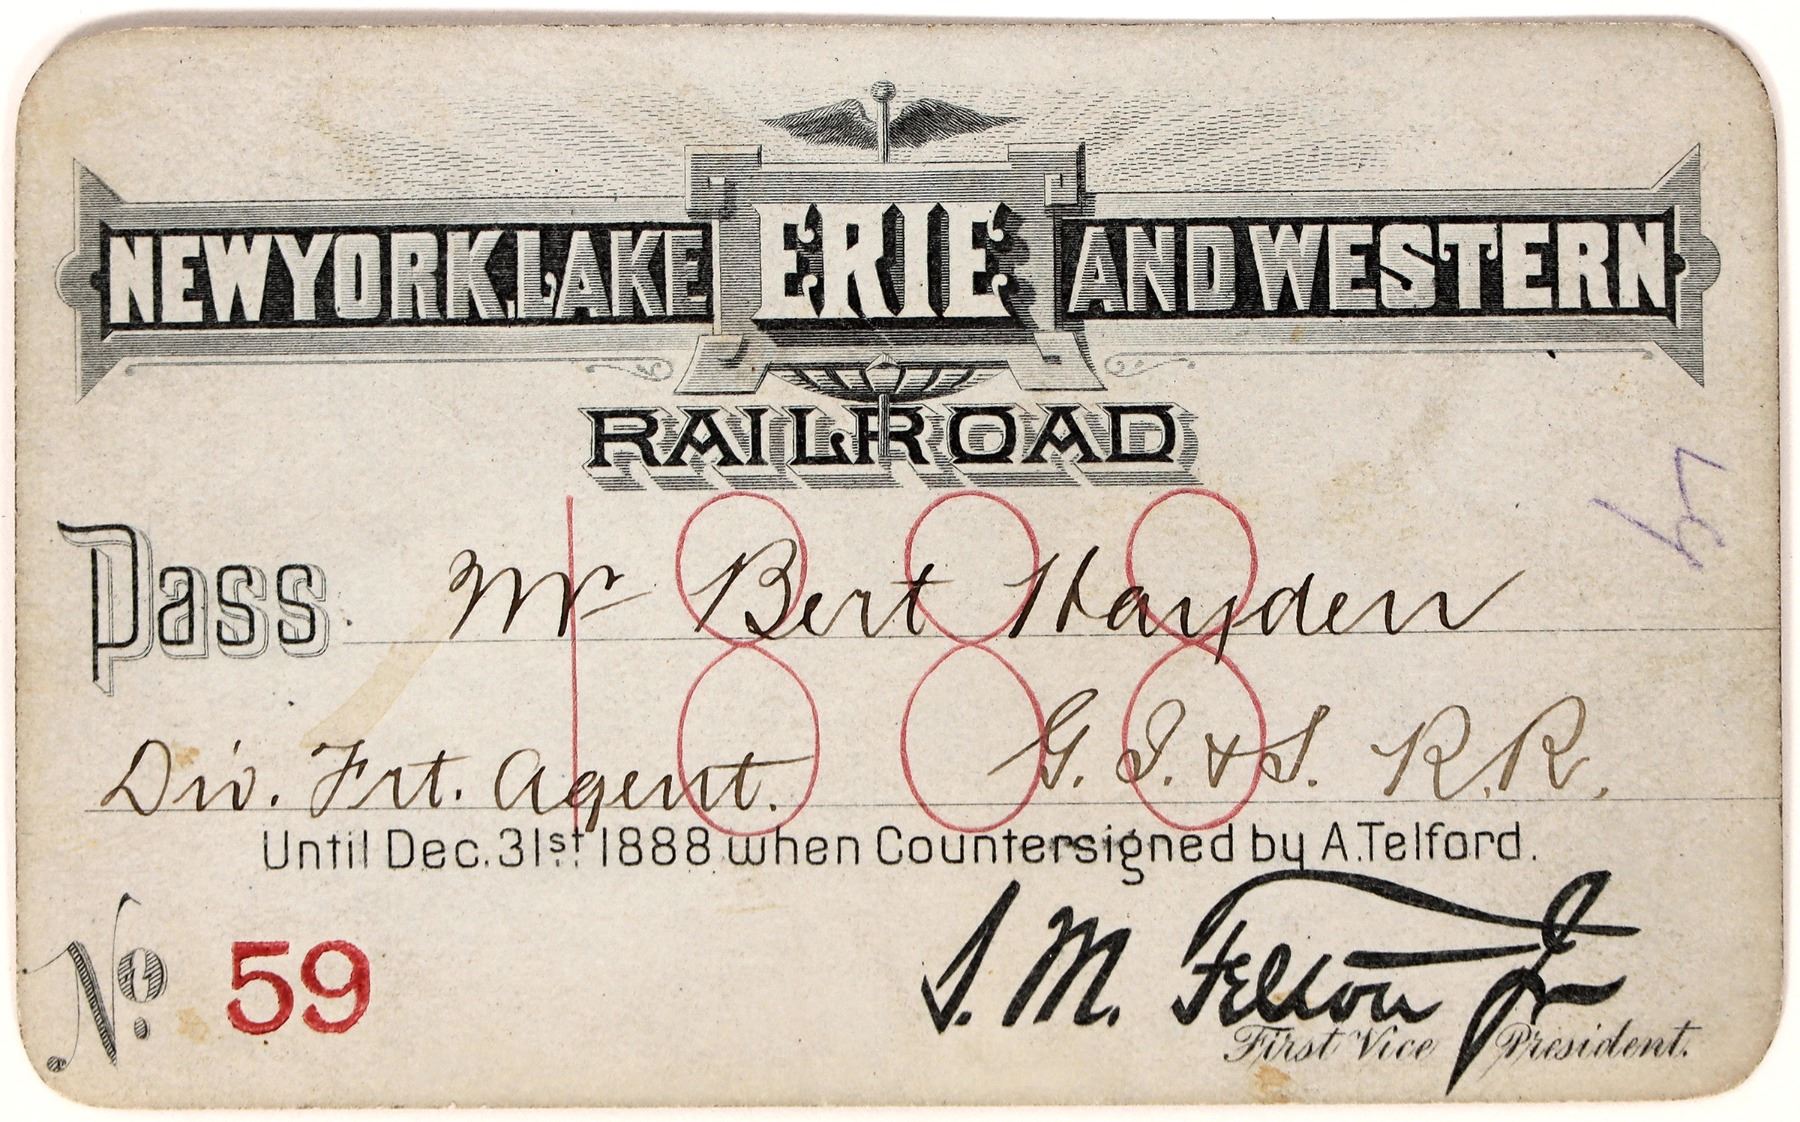 NEW YORK, LAKE ERIE AND WESTERN
RAILROAD
1888
Pass Mr Bert Hayden
Div. Frt. Agent. G. I. & S. R.R.
Until Dec. 31st 1888 when Countersigned by A. Telford.
No. 59
S. M. Felton Jr
First Vice President.